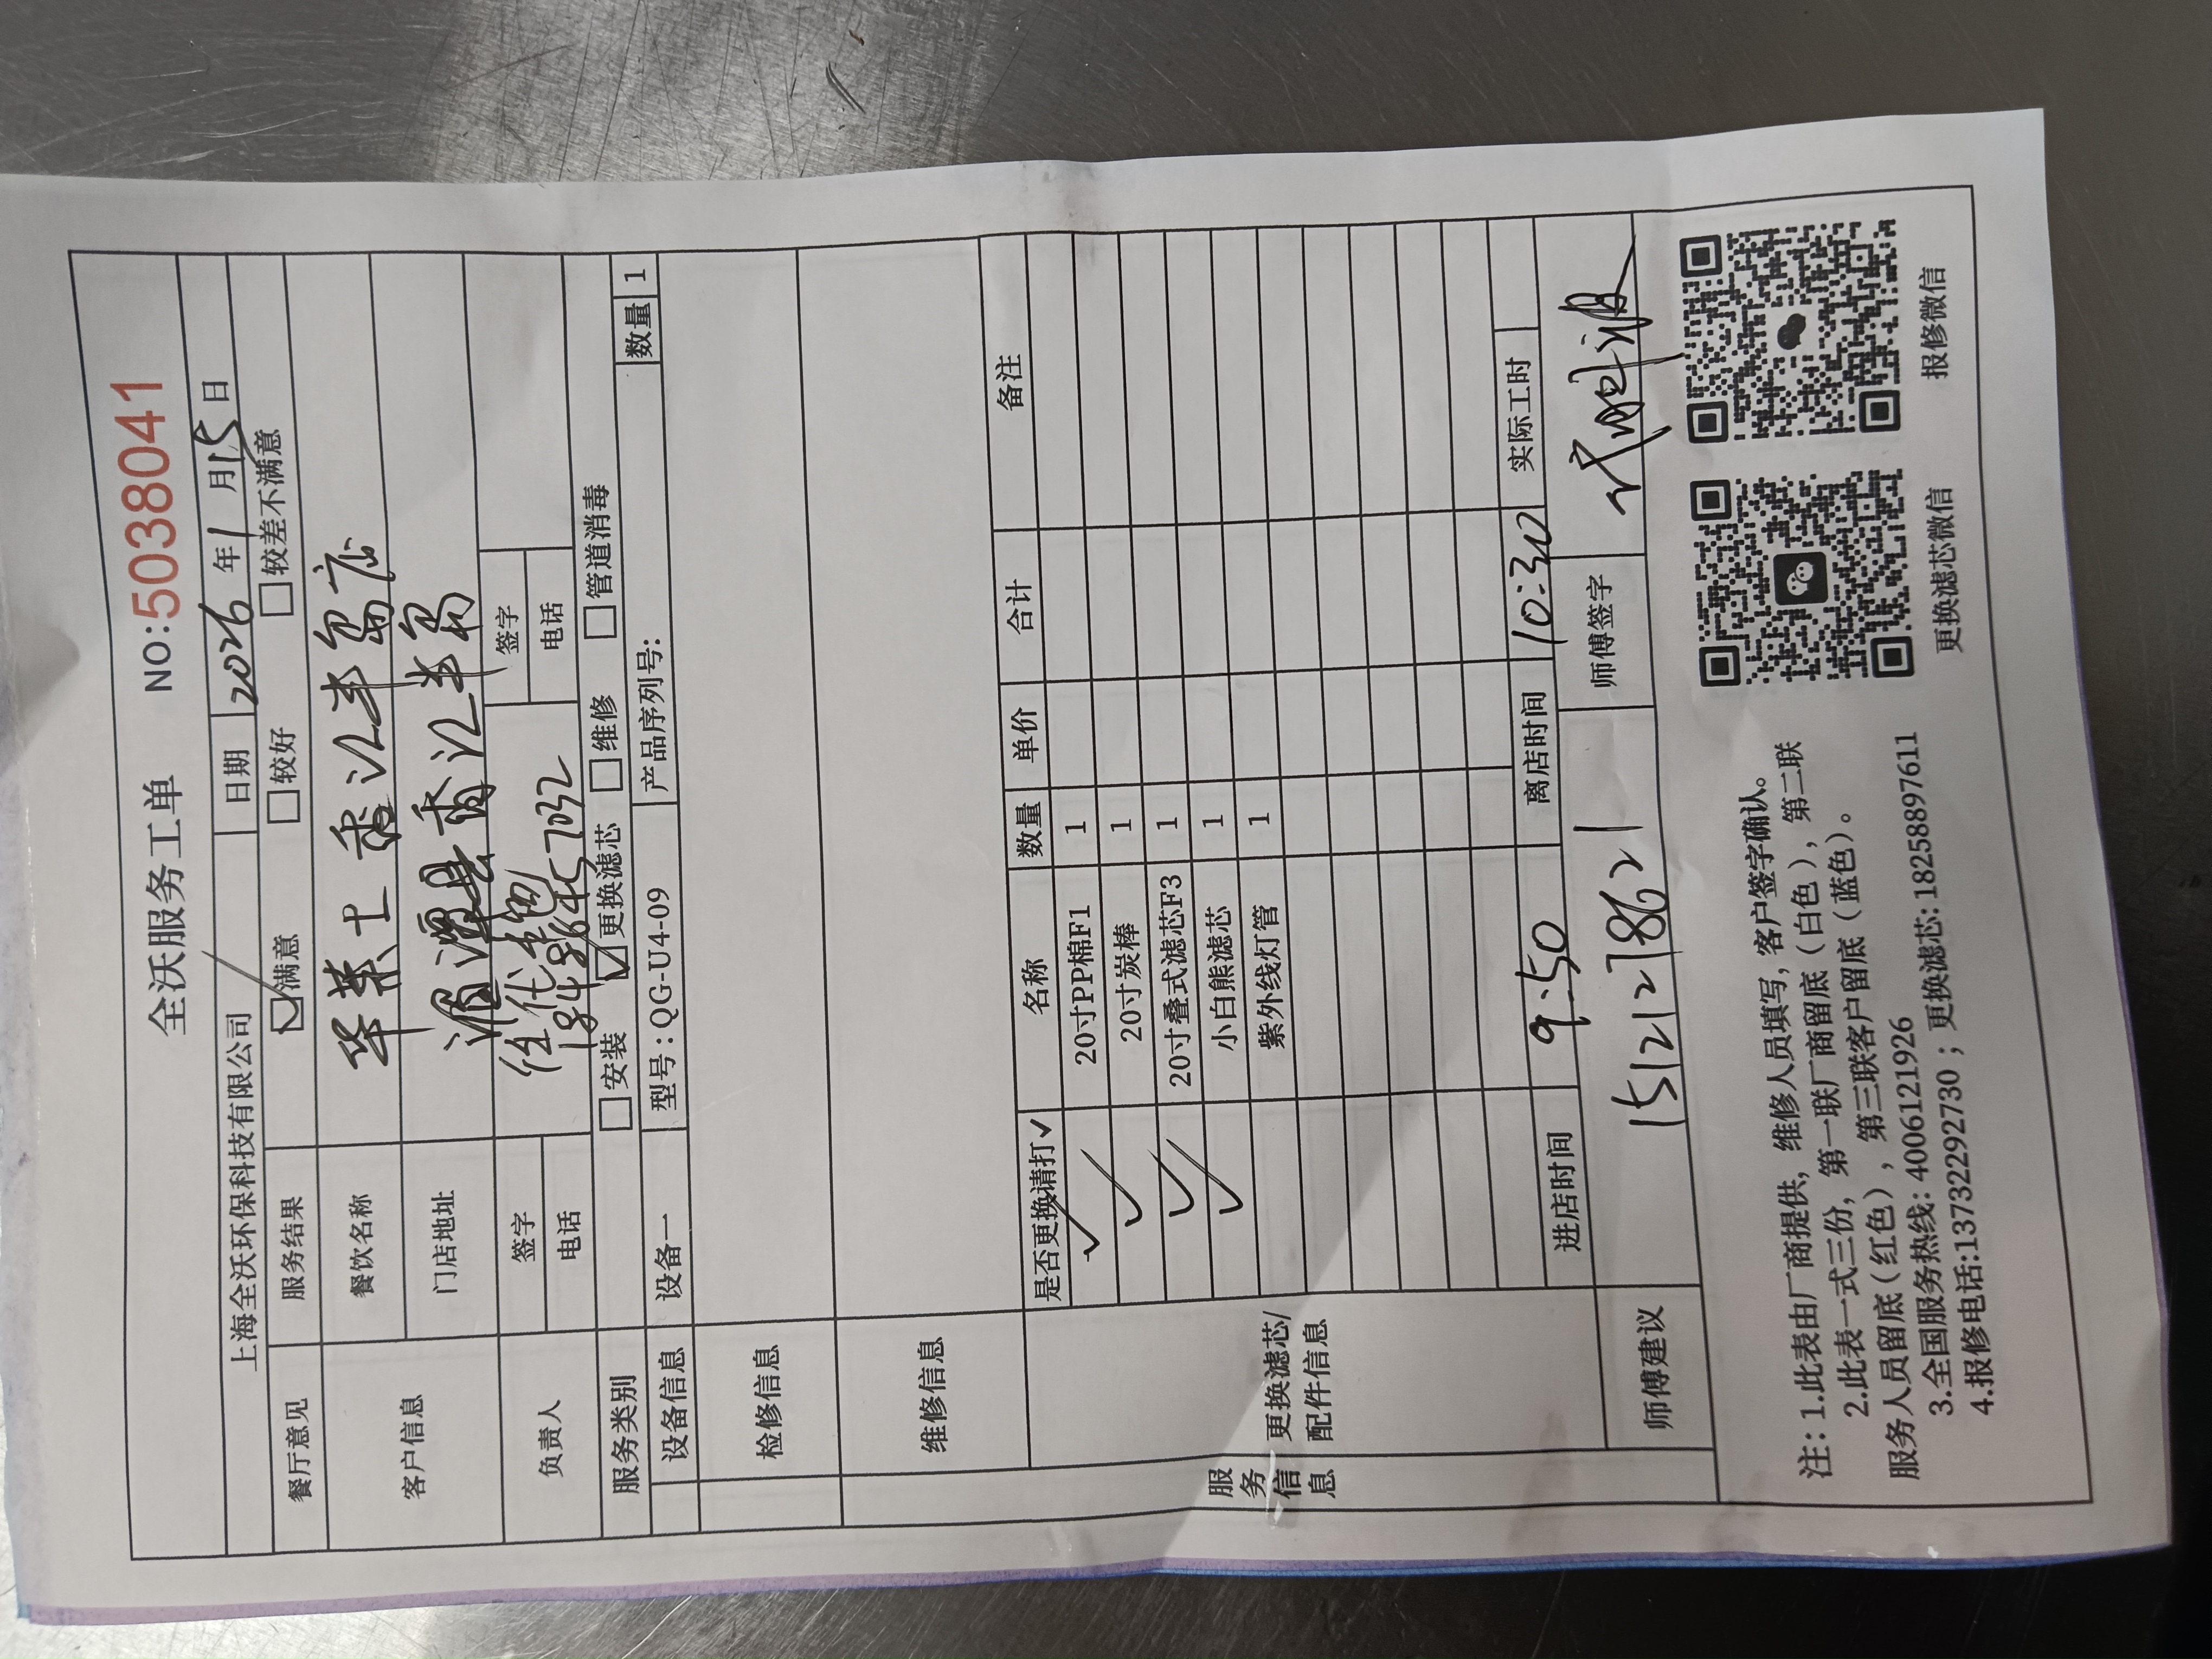 全沃服务工单 NO:5038041
上海全沃环保科技有限公司 日期 2026年1月15日
餐厅意见 服务结果 ☑满意 □较好 □较差不满意
客户信息 餐饮名称 华莱士香江半岛店
门店地址 湄潭县香江半岛
负责人 签字 签字
电话 电话
服务类别 □安装 ☑更换滤芯 □维修 □管道消毒
设备信息 设备一 型号:QG-U4-09 产品序列号: 数量 1
检修信息
维修信息
服务信息 更换滤芯/配件信息
是否更换请打✓ 名称 数量 单价 合计 备注
✓ 20寸PP棉F1 1
✓ 20寸炭棒 1
✓ 20寸叠式滤芯F3 1
✓ 小白熊滤芯 1
紫外线灯管 1
进店时间 9:50 离店时间 10:30 实际工时
师傅建议 15121278621 师傅签字
注:1.此表由厂商提供,维修人员填写,客户签字确认。
2.此表一式三份,第一联厂商留底(白色),第二联
服务人员留底(红色),第三联客户留底(蓝色)。
3.全国服务热线:4006121926
4.报修电话:13732292730;更换滤芯:18258897611
更换滤芯微信 报修微信